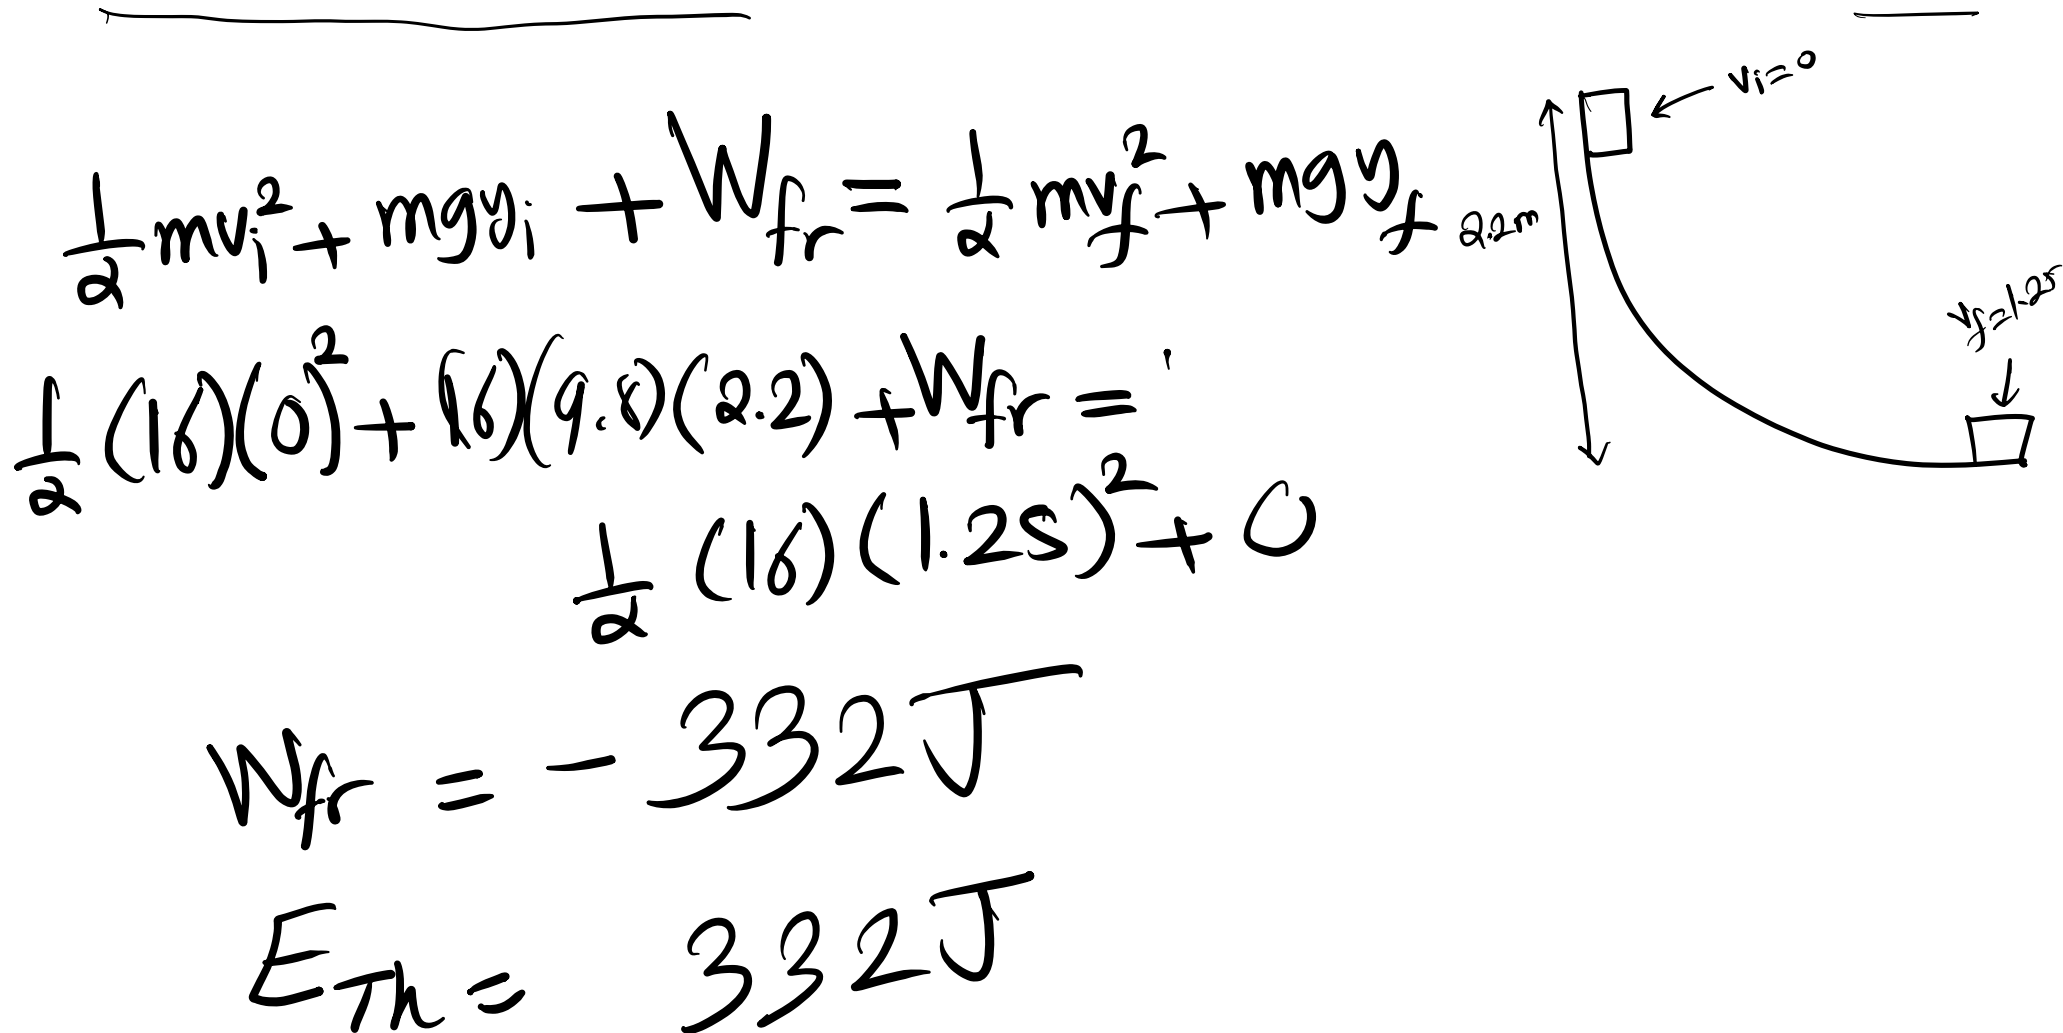 1/2 mv_i^2 + mgy_i + W_fr = 1/2 mv_f^2 + mgy_f
1/2 (16)(0)^2 + (16)(9.8)(2.2) + W_fr =
1/2 (16)(1.25)^2 + 0
W_fr = -332J
E_Th = 332J
v_i=0
2.2m
v_f=1.25